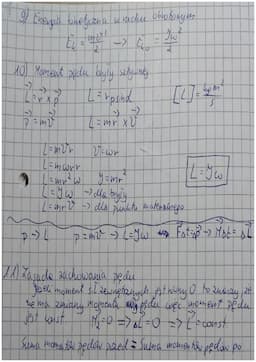 9) Energia kinetyczna w ruchu obrotowym
E_k = mv²/2 → E_ko = Jω²/2
10) Moment pędu bryły sztywnej
L = r × p   L = r p sin α   [L] = kg m²/s
p = mv   L = m r × v
L = mvr   v = ωr
L = mωrr
L = mr²ω   J = mr²
L = Jω → dla bryły   L = Jω
L = mrv → dla punktu materialnego
p → L   p = mv → L = Jω   FΔt = Δp → MΔt = ΔL
11) Zasada zachowania pędu
Jeśli moment sił zewnętrznych jest równy 0 to znaczy że
nie ma zmiany momentu pędu więc moment pędu
jest const   M = 0 ⇒ ΔL = 0 ⇒ L = const
Suma momentów pędów przed = suma momentów pędów po